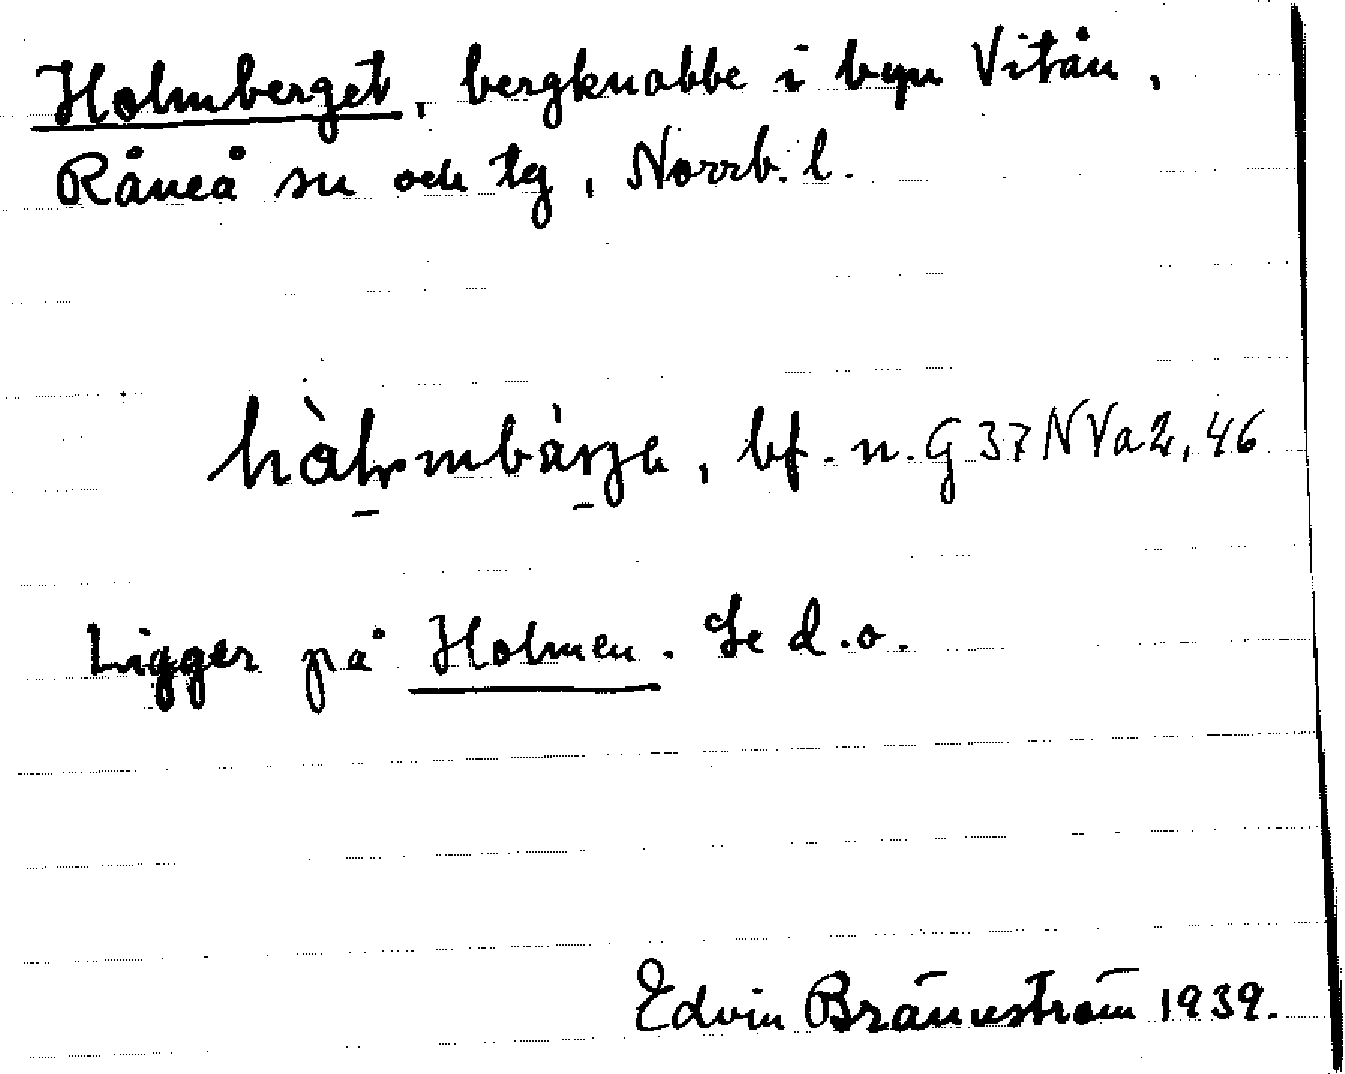 Holmberget, bergknabbe i byn Vitån,
Råneå sn och tg, Norrb. l.
bf. n. G 37 NVa2, 46
Ligger på Holmen. Se d.o.
Edvin Brännström 1939.